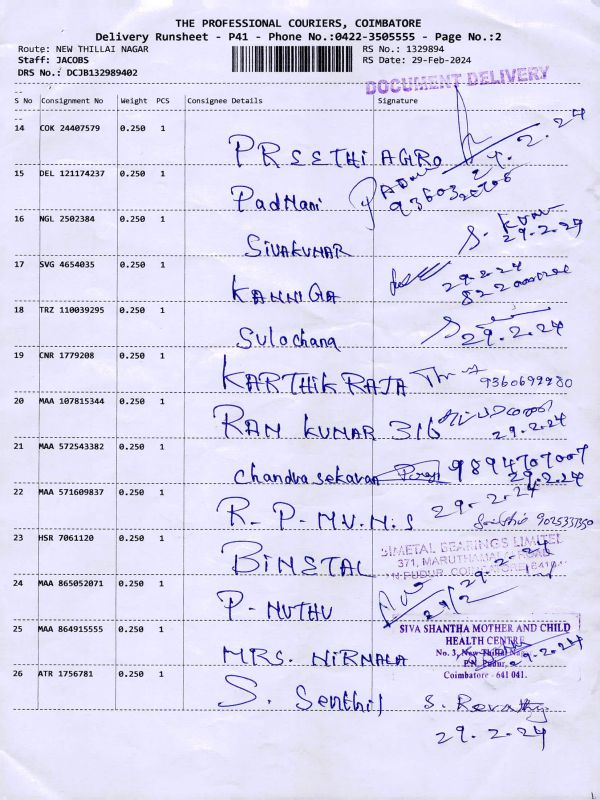 THE PROFESSIONAL COURIERS, COIMBATORE
Delivery Runsheet - P41 - Phone No.:0422-3505555 - Page No.:2
Route: NEW THILLAI NAGAR RS No.: 1329894
Staff: JACOBS RS Date: 29-Feb-2024
DRS No.: DCJB132989402
DOCUMENT DELIVERY
S No Consignment No Weight PCS Consignee Details Signature
14 COK 24407579 0.250 1
PREETHI AGRO
15 DEL 121174237 0.250 1
PadMani
16 NGL 2502384 0.250 1
SIVAKUMAR S. Kumar 29.2.24
17 SVG 4654035 0.250 1
KANNIGA 29.2.24
18 TRZ 110039295 0.250 1
Sulochana 29.2.24
19 CNR 1779208 0.250 1
KARTHIK RAJA 9360699980
20 MAA 107815344 0.250 1
RAM KUMAR 316 29.2.24
21 MAA 572543382 0.250 1
Chandra sekaran 9894707007 29.2.24
22 MAA 571609837 0.250 1 29-2-24
R-P-M.V.N.S
23 HSR 7061120 0.250 1
BIMETAL BEARINGS LIMITED
371, MARUTHAMALAI ROAD
BIMETAL 29-2-24
24 MAA 865052071 0.250 1
P-MUTHU 29/2
25 MAA 864915555 0.250 1
SIVA SHANTHA MOTHER AND CHILD
HEALTH CENTRE
No. 3, New Thillai Nagar
P.N. Pudur,
Coimbatore - 641 041.
MRS. NIRMALA 29.2.24
26 ATR 1756781 0.250 1
S. Senthil S. Revathy
29.2.24